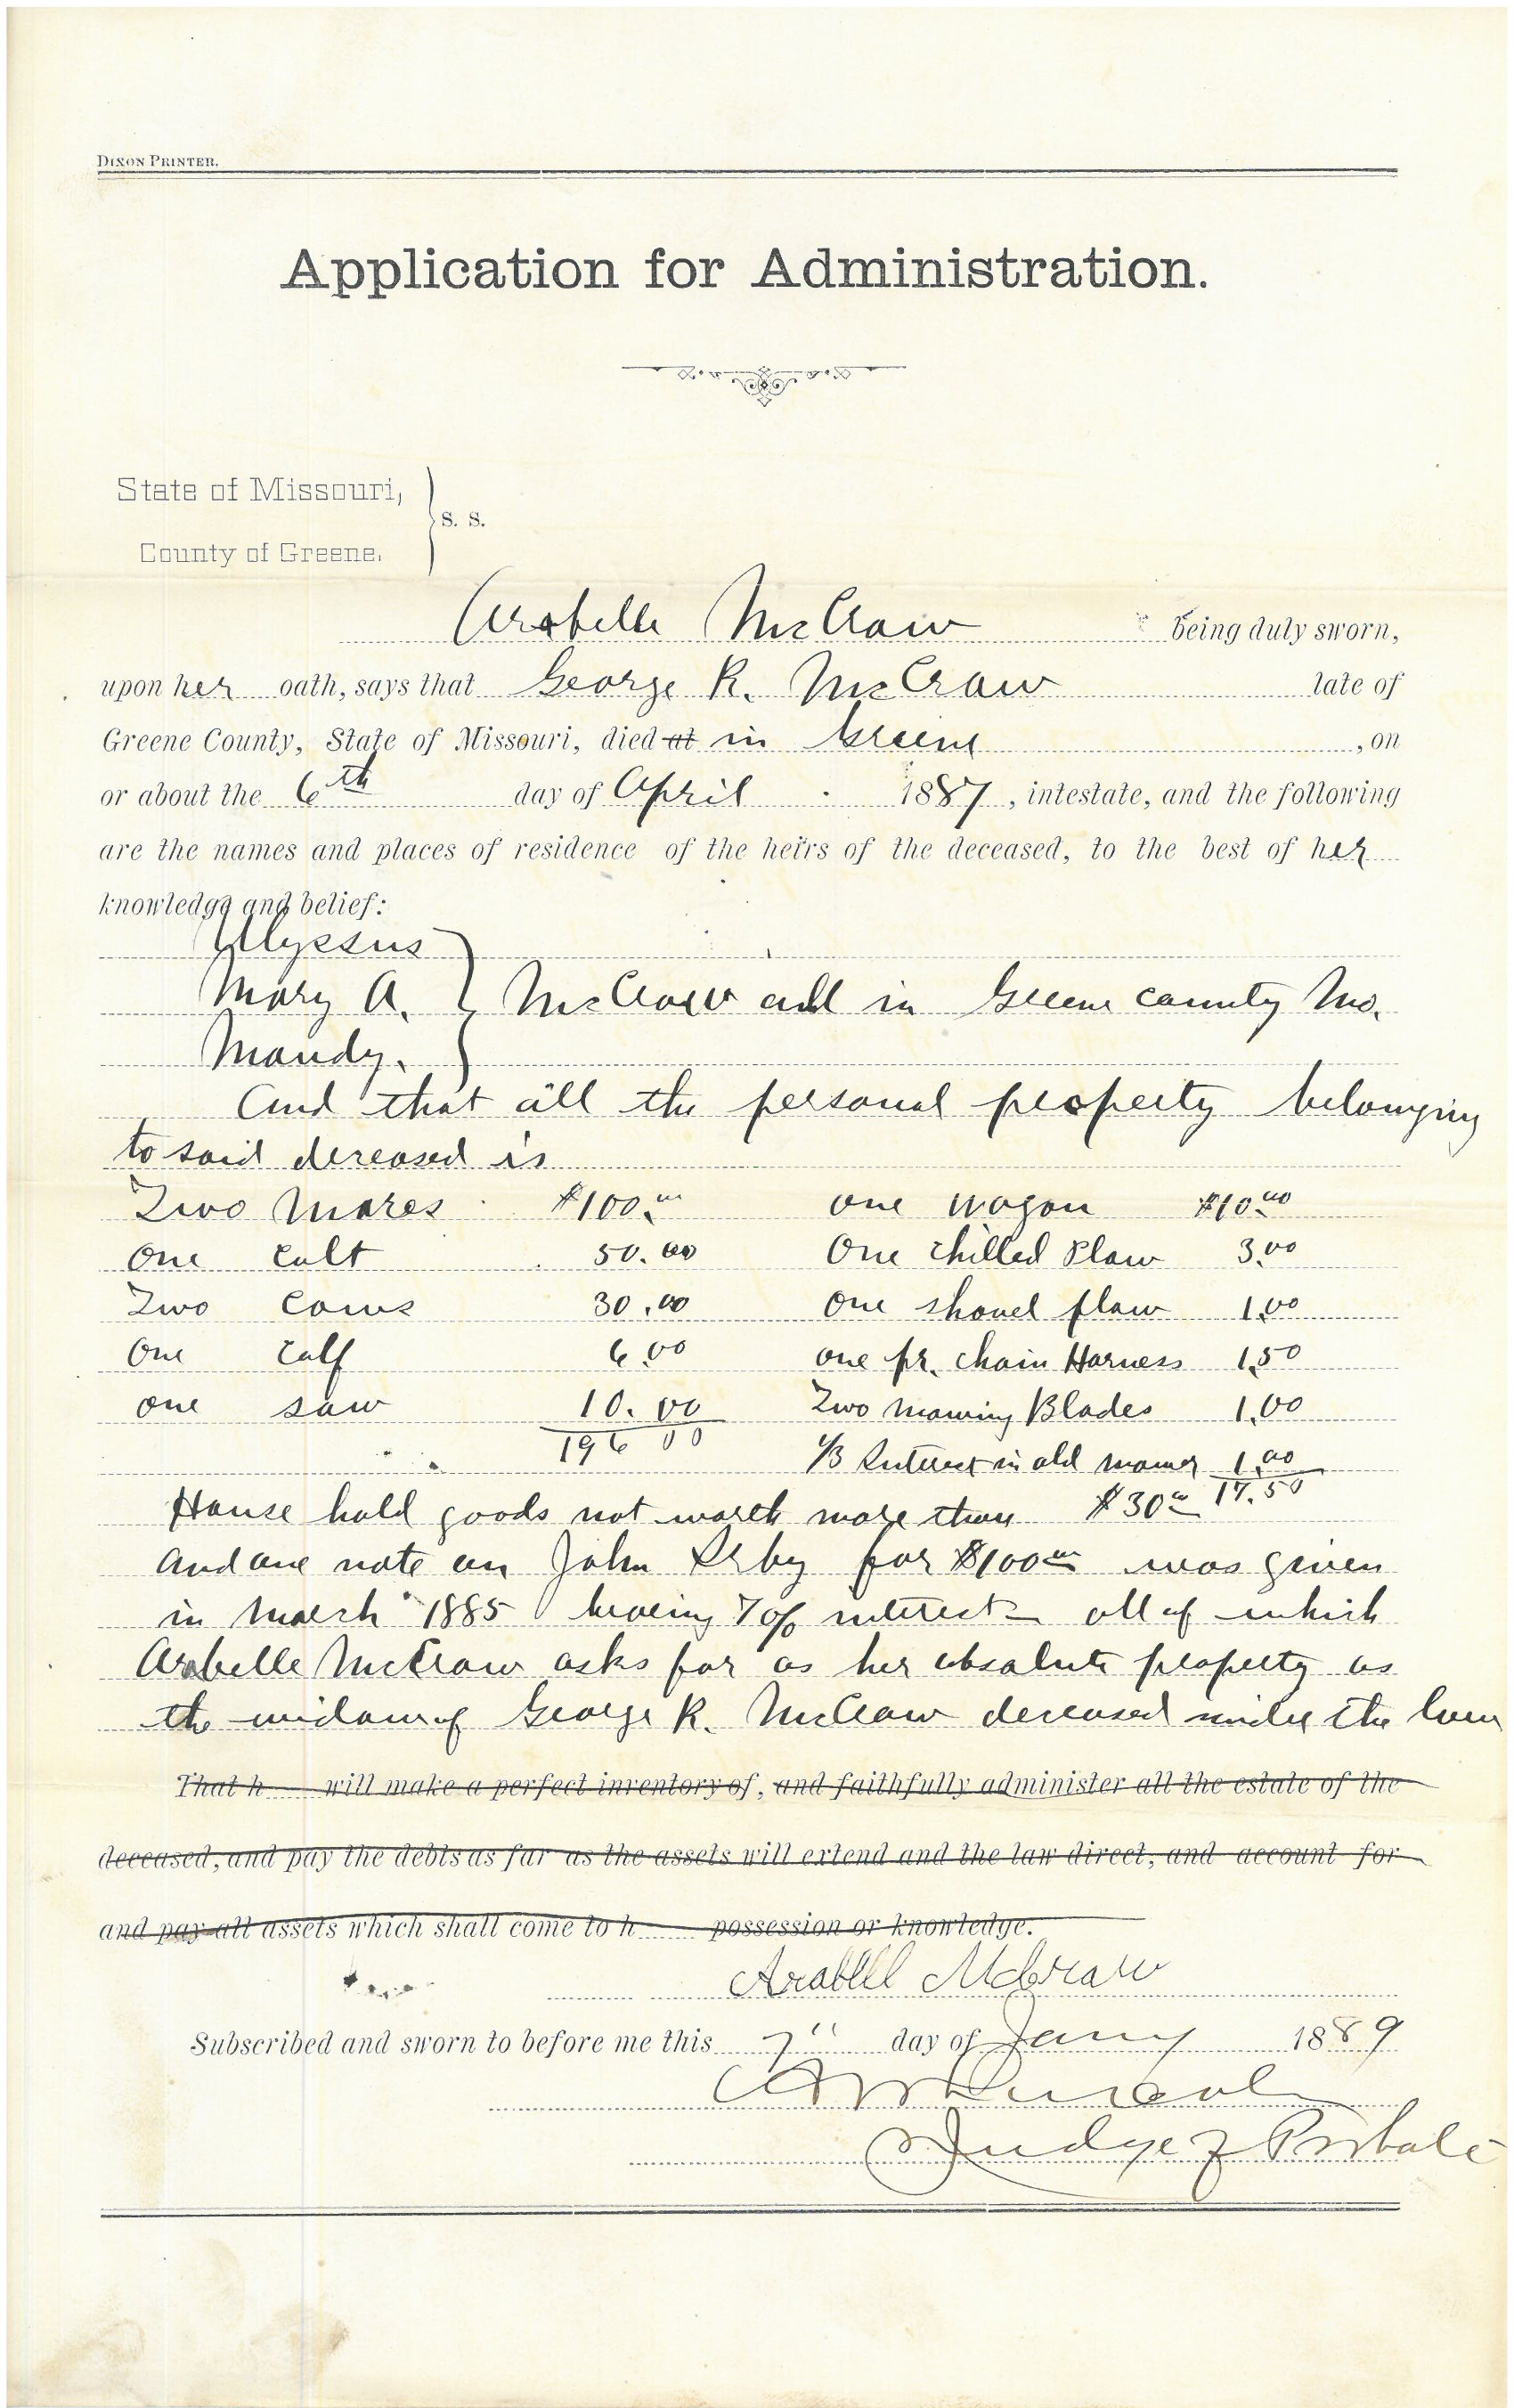 DIXON PRINTER.
Application for Administration.
State of Missouri,
S. S.
County of Greene.
Arabelle McCraw being duly sworn,
upon her oath, says that George R. McCraw late of
Greene County, State of Missouri, died at in Greene , on
or about the 6th day of April 1887, intestate, and the following
are the names and places of residence of the heirs of the deceased, to the best of her
knowledge and belief:
Ulyssus
Mary A. } McCraw all in Greene County Mo.
Mandy.
And that all the personal property belonging
to said deceased is
Two Mares $100.00 one wagon $10.00
One Colt 50.00 One chilled Plow 3.00
Two Cows 30.00 One shovel plow 1.00
One Calf 6.00 one pr. chain Harness 1.50
one saw 10.00 Two Mowing Blades 1.00
196 00 1/3 Interest in old mower 1.00
17.50
House hold goods not worth more than $30.00
And one note on John Irby for $100.00 was given
in March 1885 bearing 7% interest all of which
Arabelle McCraw asks for as her absolute property as
the widow of George R. McCraw deceased under the law
That h will make a perfect inventory of, and faithfully administer all the estate of the
deceased, and pay the debts as far as the assets will extend and the law direct, and account for
and pay all assets which shall come to h possession or knowledge.
Arabell McCraw
Subscribed and sworn to before me this 7" day of Jany 1889
Judge of Probate